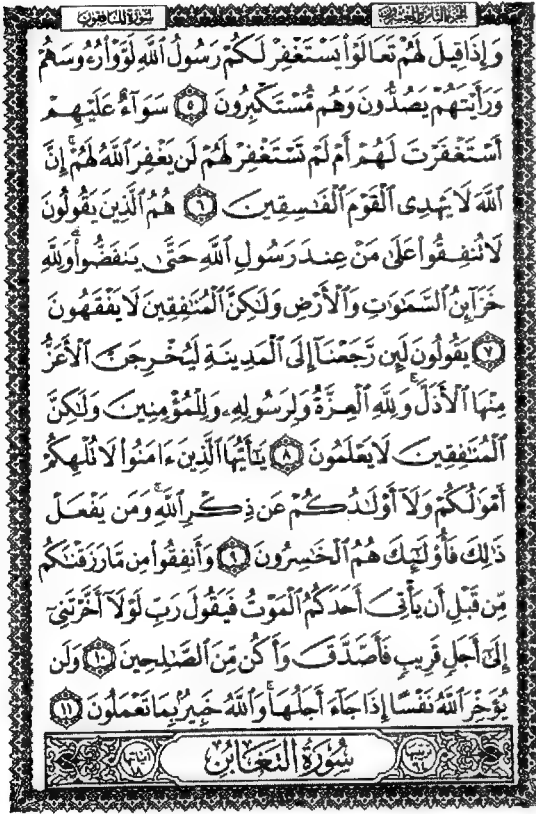 الجزء الثامن والعشرون
سورة المنافقون
وَإِذَا قِيلَ لَهُمْ تَعَالَوْا۟ يَسْتَغْفِرْ لَكُمْ رَسُولُ ٱللَّهِ لَوَّوْا۟ رُءُوسَهُمْ
وَرَأَيْتَهُمْ يَصُدُّونَ وَهُم مُّسْتَكْبِرُونَ ٥ سَوَآءٌ عَلَيْهِمْ
أَسْتَغْفَرْتَ لَهُمْ أَمْ لَمْ تَسْتَغْفِرْ لَهُمْ لَن يَغْفِرَ ٱللَّهُ لَهُمْ ۚ إِنَّ
ٱللَّهَ لَا يَهْدِى ٱلْقَوْمَ ٱلْفَٰسِقِينَ ٦ هُمُ ٱلَّذِينَ يَقُولُونَ
لَا تُنفِقُوا۟ عَلَىٰ مَنْ عِندَ رَسُولِ ٱللَّهِ حَتَّىٰ يَنفَضُّوا۟ ۗ وَلِلَّهِ
خَزَآئِنُ ٱلسَّمَٰوَٰتِ وَٱلْأَرْضِ وَلَٰكِنَّ ٱلْمُنَٰفِقِينَ لَا يَفْقَهُونَ
٧ يَقُولُونَ لَئِن رَّجَعْنَآ إِلَى ٱلْمَدِينَةِ لَيُخْرِجَنَّ ٱلْأَعَزُّ
مِنْهَا ٱلْأَذَلَّ ۚ وَلِلَّهِ ٱلْعِزَّةُ وَلِرَسُولِهِۦ وَلِلْمُؤْمِنِينَ وَلَٰكِنَّ
ٱلْمُنَٰفِقِينَ لَا يَعْلَمُونَ ٨ يَٰٓأَيُّهَا ٱلَّذِينَ ءَامَنُوا۟ لَا تُلْهِكُمْ
أَمْوَٰلُكُمْ وَلَآ أَوْلَٰدُكُمْ عَن ذِكْرِ ٱللَّهِ ۚ وَمَن يَفْعَلْ
ذَٰلِكَ فَأُو۟لَٰٓئِكَ هُمُ ٱلْخَٰسِرُونَ ٩ وَأَنفِقُوا۟ مِن مَّا رَزَقْنَٰكُم
مِّن قَبْلِ أَن يَأْتِىَ أَحَدَكُمُ ٱلْمَوْتُ فَيَقُولَ رَبِّ لَوْلَآ أَخَّرْتَنِىٓ
إِلَىٰٓ أَجَلٍ قَرِيبٍ فَأَصَّدَّقَ وَأَكُن مِّنَ ٱلصَّٰلِحِينَ ١٠ وَلَن
يُؤَخِّرَ ٱللَّهُ نَفْسًا إِذَا جَآءَ أَجَلُهَا ۚ وَٱللَّهُ خَبِيرٌۢ بِمَا تَعْمَلُونَ ١١
سُورَةُ التَّغَابُنِ
آياتها
١٨